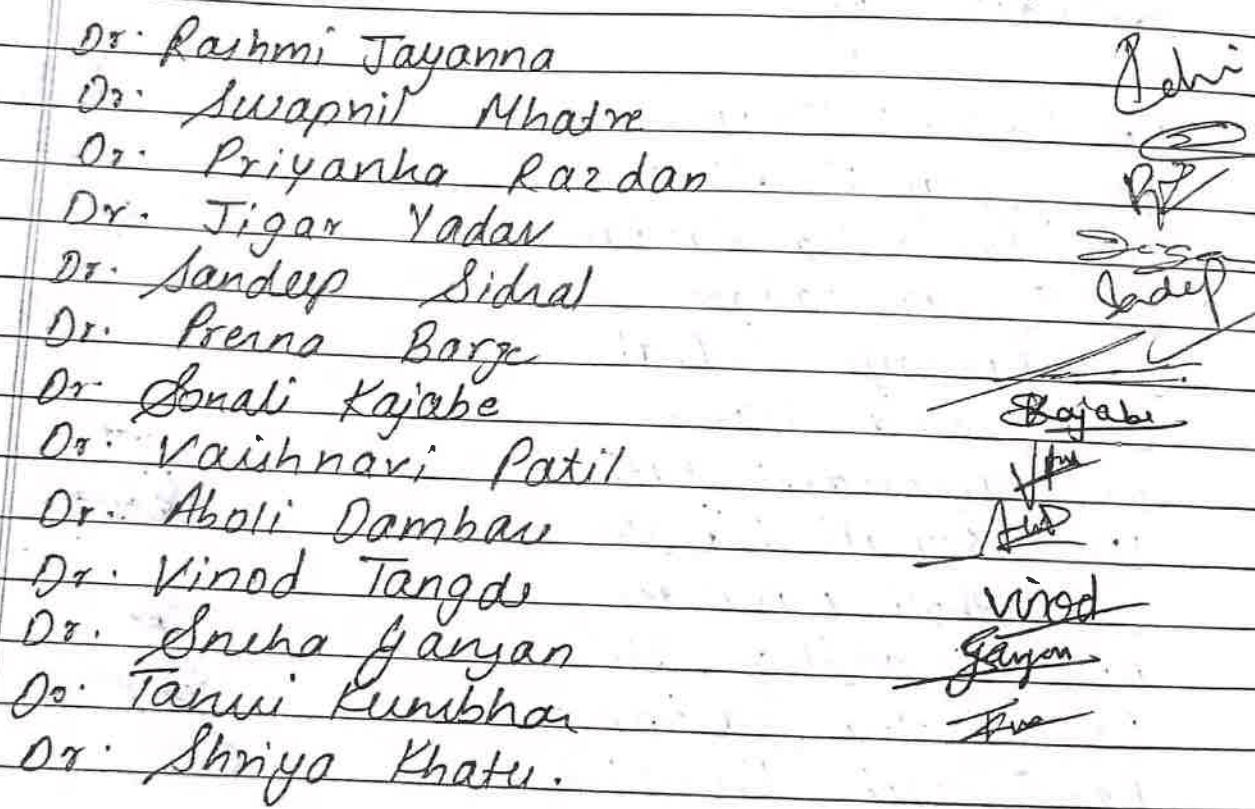 Dr. Rashmi Jayanna
Dr. Swapnil Mhatre
Dr. Priyanka Razdan
Dr. Jigar Yadav
Dr. Sandeep Sidral
Dr. Prerna Barge
Dr Sonali Kajabe Skajabe
Dr. Vaishnavi Patil
Dr. Aboli Dambau
Dr. Vinod Tangde Vinod
Dr. Sneha Ganjan
Dr. Tanvi Kumbhar
Dr. Shriya Khatu.